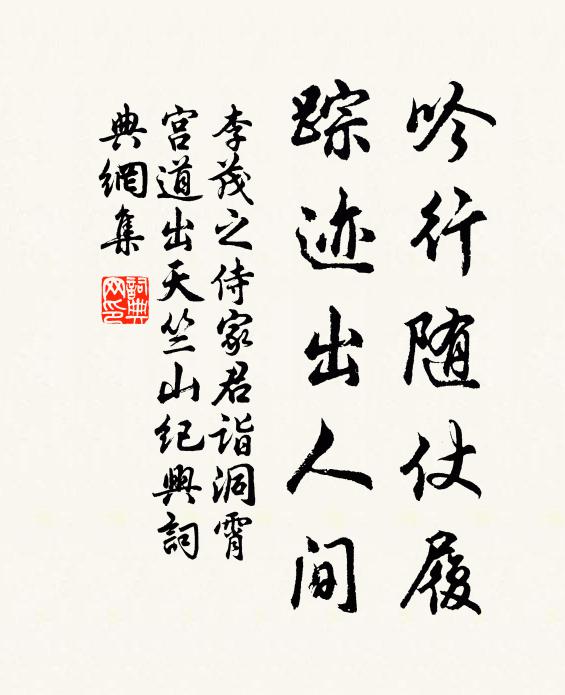 吟行随仗履
踪迹出人间
李茂之侍家君诣洞霄
宫道出天竺山纪興詞
典網集
詞典网印